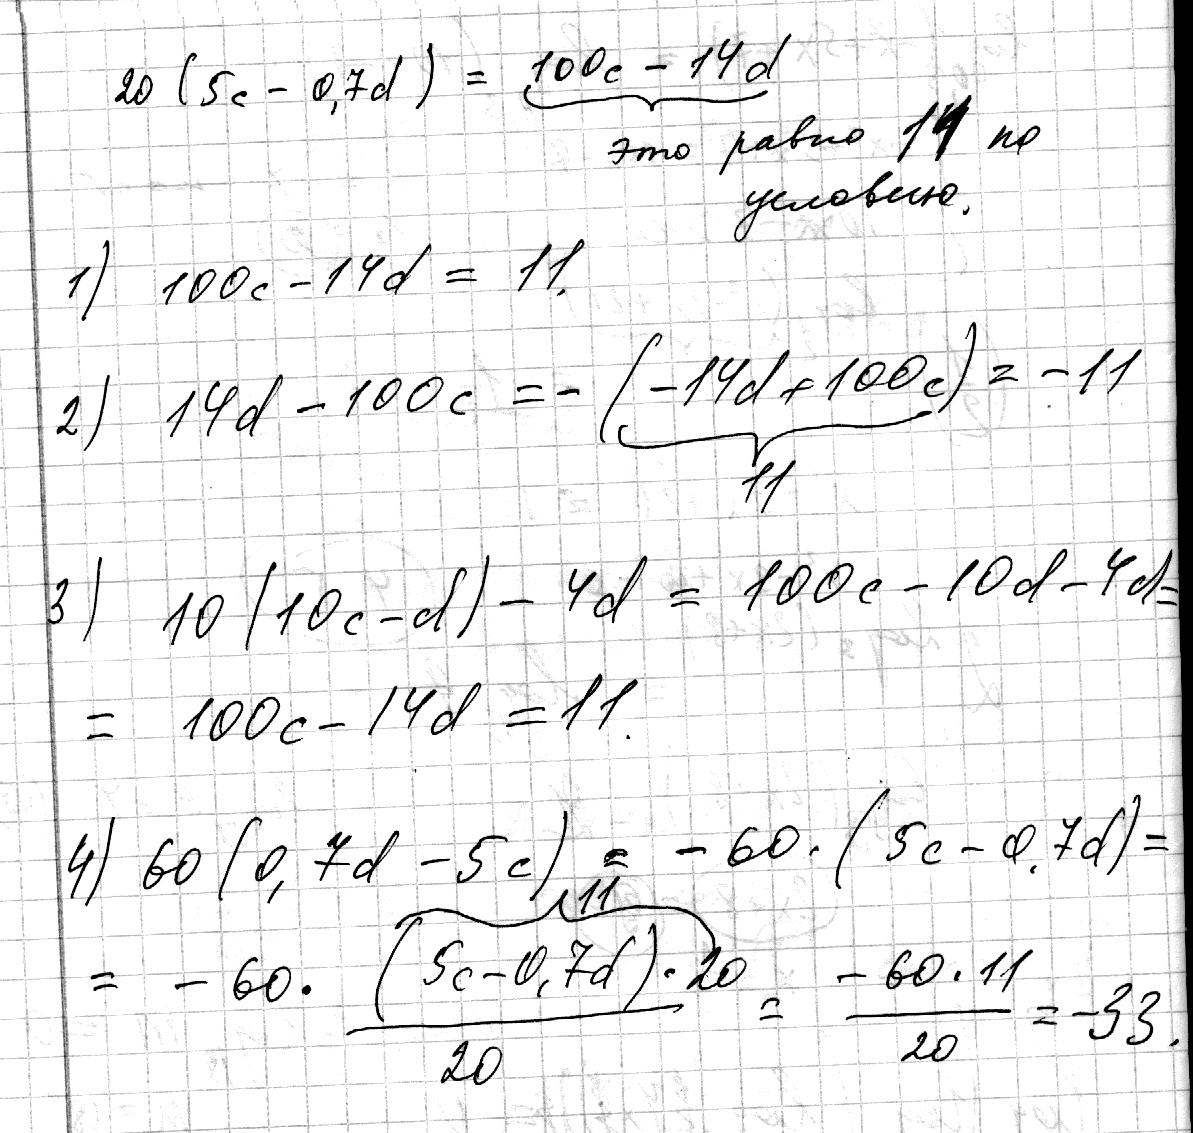 20 (5c - 0,7d) = 100c - 14d
это равно 11 по
условию.
1) 100c - 14d = 11.
2) 14d - 100c = - (-14d + 100c) = -11
11
3) 10 (10c - d) - 4d = 100c - 10d - 4d =
= 100c - 14d = 11.
4) 60 (0,7d - 5c) = - 60 · (5c - 0,7d) =
11
= - 60 · (5c - 0,7d) · 20 / 20 = - 60 · 11 / 20 = -33.